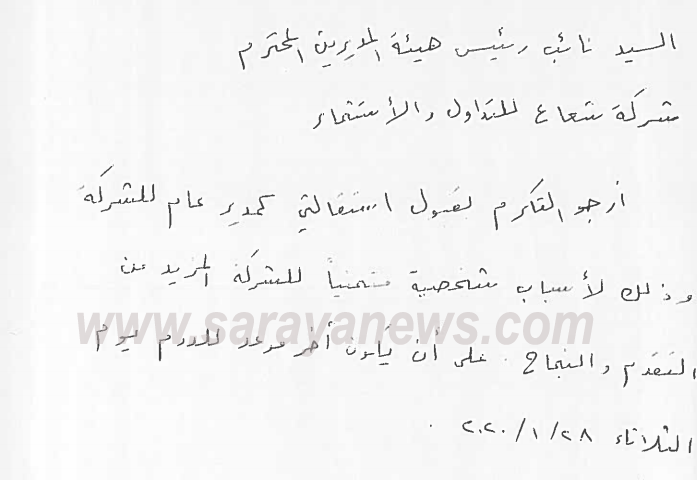 السيد نائب رئيس هيئة المديرين المحترم
شركة شعاع للتداول والأستثمار
أرجو التكرم بقبول استقالتي كمدير عام للشركة
وذلك لأسباب شخصية متمنياً للشركة المزيد من
www.sarayanews.com
التقدم والنجاح. على أن يكون أخر موعد للدوام يوم
الثلاثاء ٢٠٢٠/١/٢٨.